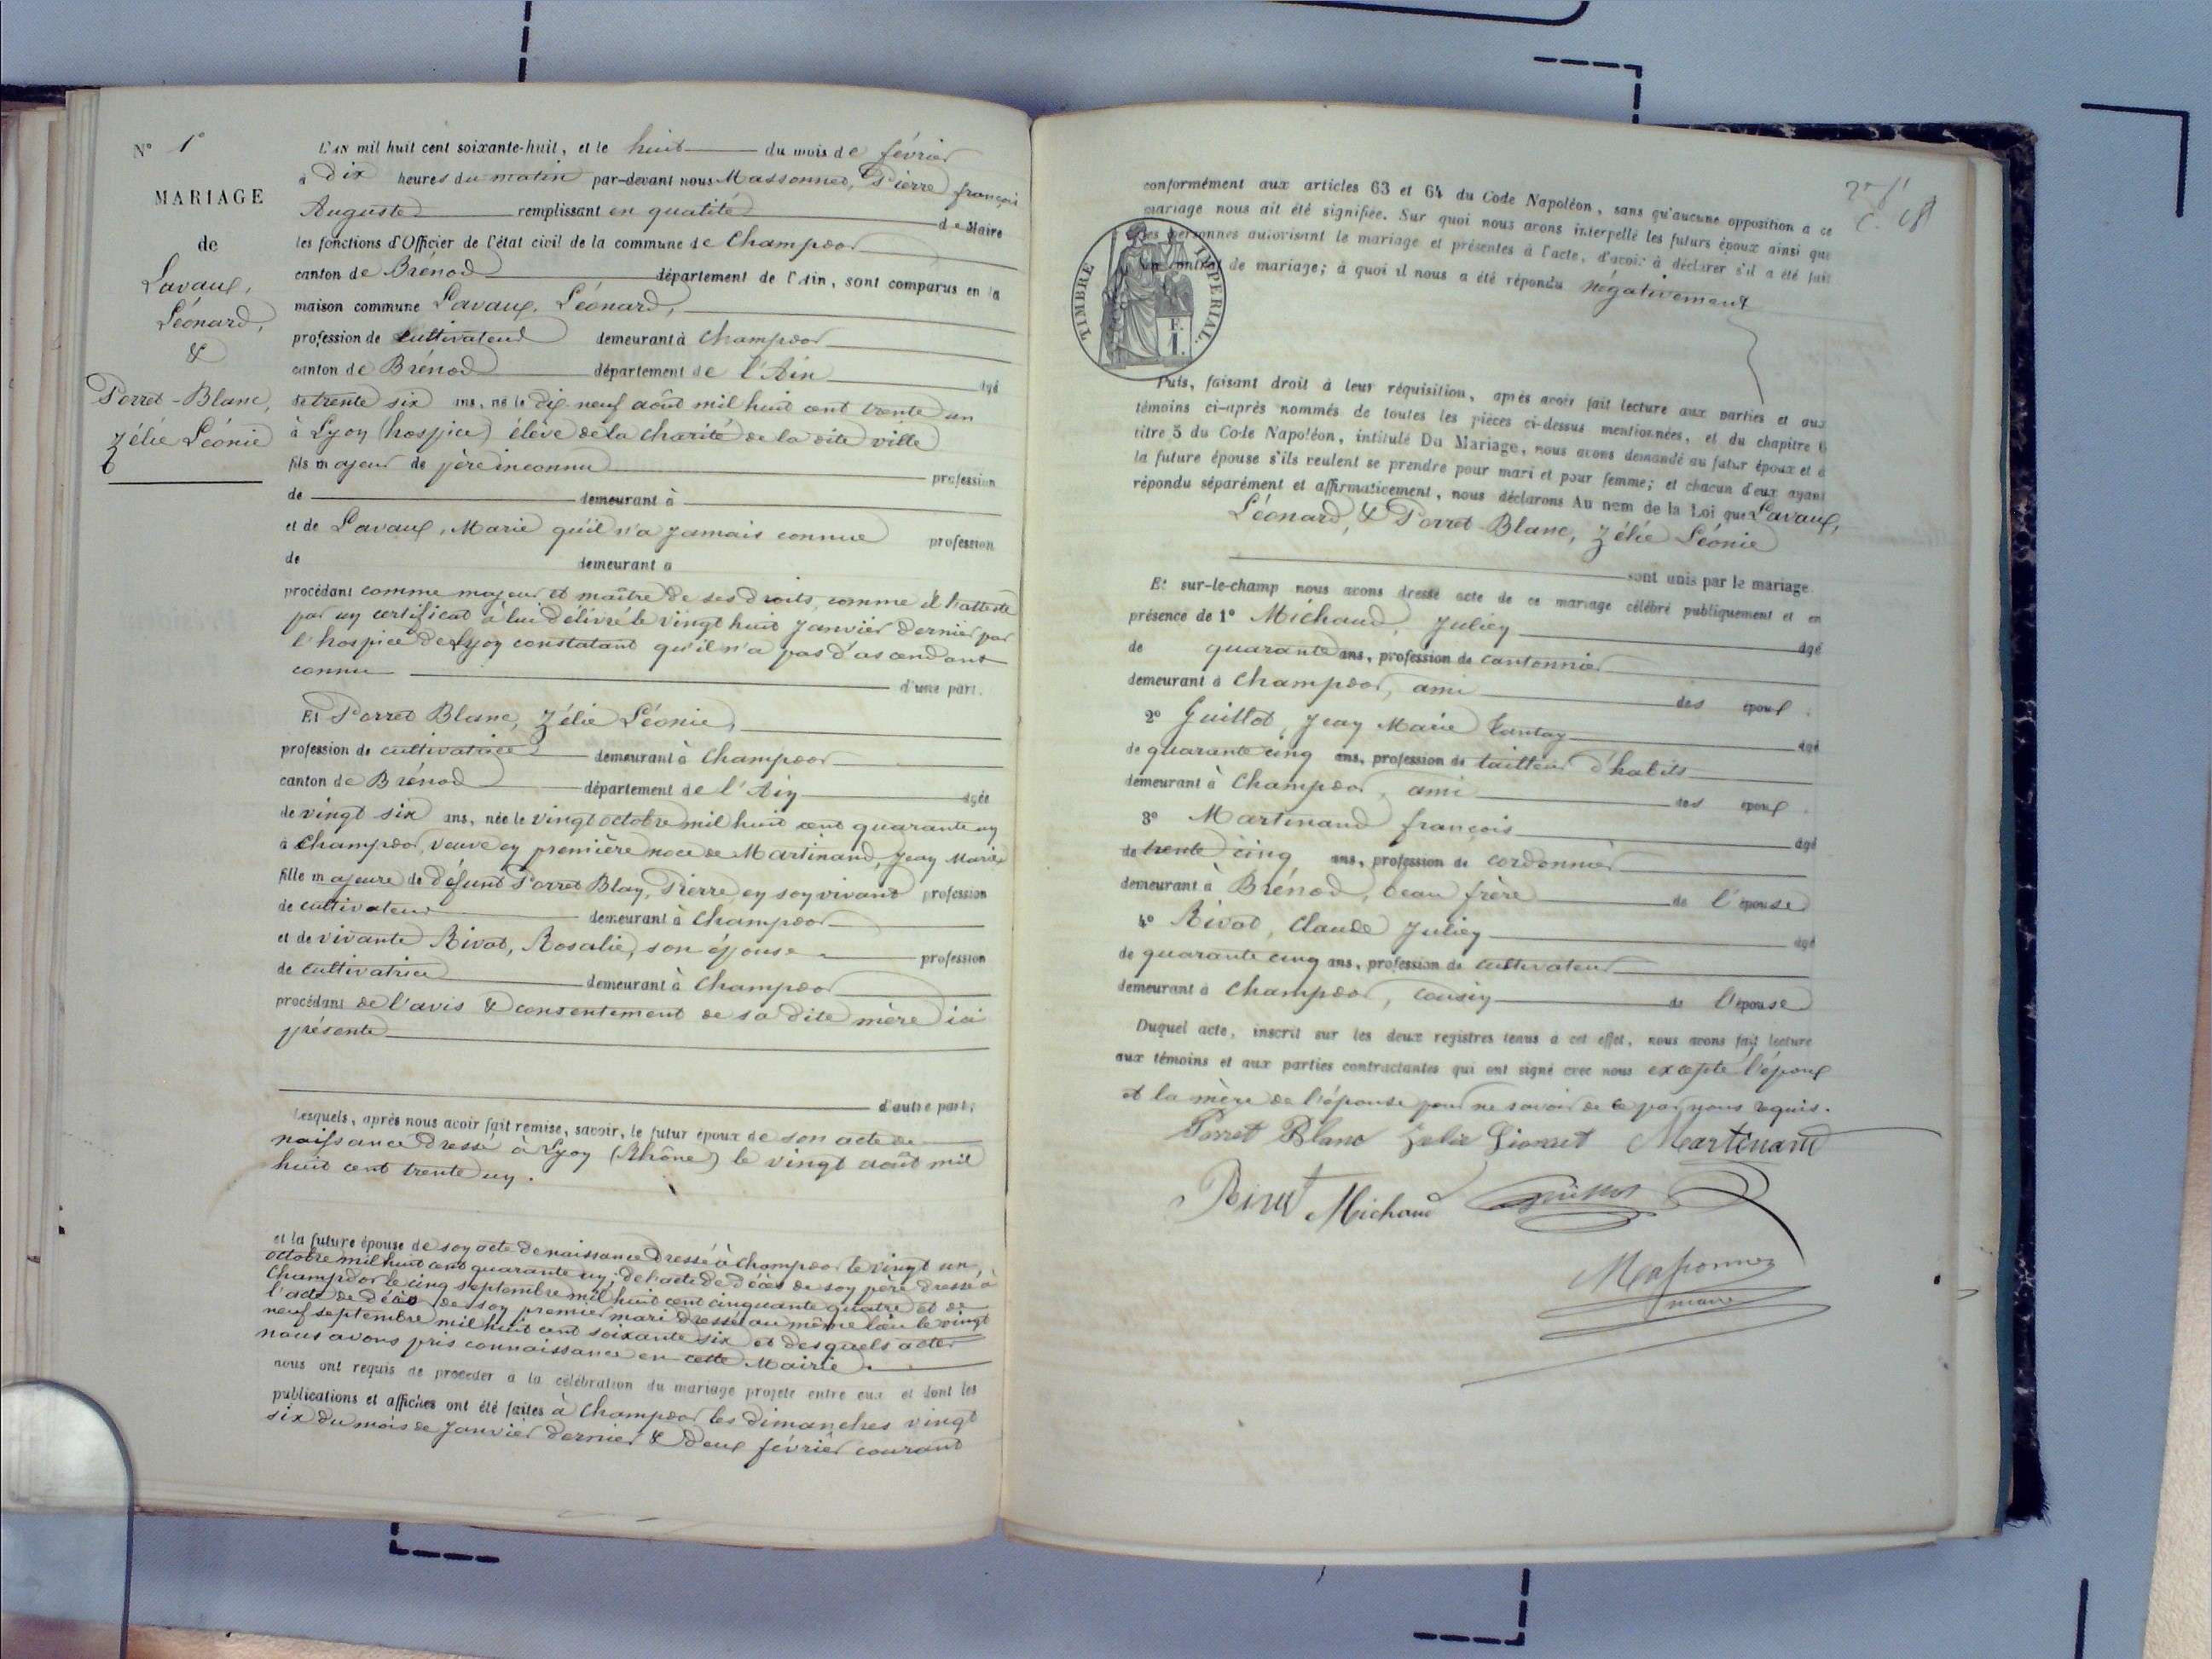 N° 1°
MARIAGE
de
Lavaux,
Léonard,
&
Porret-Blanc,
Zélie Léonie
L'AN mil huit cent soixante-huit, et le huit du mois de février
à Dix heures du matin par-devant nous Massonnet, Pierre françois
Auguste remplissant en qualité de Maire
les fonctions d'Officier de l'état civil de la commune de Champdor
canton de Brénod département de l'Ain, sont comparus en la
maison commune Lavaux, Léonard,
profession de Cultivateur demeurant à Champdor
canton de Brénod département de l'Ain âgé
de trente six ans, né le dix-neuf août mil huit cent trente un
à Lyon (hospice) élève de la Charité de la dite ville
fils majeur de père inconnu profession
de demeurant à
et de Lavaux, Marie qu'il n'a jamais connue profession
de demeurant à
procédant comme majeur et maître de ses droits, comme il l'atteste
par un certificat à lui délivré le vingt huit Janvier dernier par
l'hospice de Lyon constatant qu'il n'a pas d'ascendant
connu d'une part.
Et Porret Blanc, Zélie Léonie,
profession de cultivatrice demeurant à Champdor
canton de Brénod département de l'Ain âgée
de vingt six ans, née le vingt octobre mil huit cent quarante un
à Champdor, veuve en première noce de Martinand, Jean Marie
fille majeure de défunt Porret Blan, Pierre en son vivant profession
de cultivateur demeurant à Champdor
et de vivante Rivat, Rosalie, son épouse profession
de cultivatrice demeurant à Champdor
procédant de l'avis & consentement de sa dite mère ici
présente
d'autre part;
Lesquels, après nous avoir fait remise, savoir, le futur époux de son acte de
naissance dressé à Lyon (Rhône) le vingt août mil
huit cent trente un.
et la future épouse de son acte de naissance dressé à Champdor le vingt un
octobre mil huit cent quarante un; de l'acte de décès de son père dressé à
Champdor le cinq septembre mil huit cent cinquante quatre et de
l'acte de décès de son premier mari dressé au même lieu le vingt
neuf septembre mil huit cent soixante six et desquels actes
nous avons pris connaissance en cette Mairie.
nous ont requis de procéder à la célébration du mariage projeté entre eux et dont les
publications et affiches ont été faites à Champdor les dimanches vingt
six du mois de Janvier dernier & deux février courant
conformément aux articles 63 et 64 du Code Napoléon, sans qu'aucune opposition à ce
mariage nous ait été signifiée. Sur quoi nous avons interpellé les futurs époux ainsi que
les personnes autorisant le mariage et présentes à l'acte, d'avoir à déclarer s'il a été fait
un contrat de mariage; à quoi il nous a été répondu négativement
TIMBRE IMPERIAL.
Puis, faisant droit à leur réquisition, après avoir fait lecture aux parties et aux
témoins ci-après nommés de toutes les pièces ci-dessus mentionnées, et du chapitre 6
titre 5 du Code Napoléon, intitulé Du Mariage, nous avons demandé au futur époux et à
la future épouse s'ils veulent se prendre pour mari et pour femme; et chacun d'eux ayant
répondu séparément et affirmativement, nous déclarons Au nom de la Loi que Lavaux,
Léonard, & Porret-Blanc, Zélie Léonie
sont unis par le mariage.
Et sur-le-champ nous avons dressé acte de ce mariage célébré publiquement et en
présence de 1° Michaud, Julien âgé
de quarante ans, profession de cantonnier
demeurant à Champdor, ami des époux.
2° Guillot, Jean Marie âgé
de quarante cinq ans, profession de tailleur d'habits
demeurant à Champdor, ami des époux.
3° Martinand françois âgé
de trente cinq ans, profession de cordonnier
demeurant à Brénod, beau frère de l'épouse
4° Rivat, Claude Julien âgé
de quarante cinq ans, profession de cultivateur
demeurant à Champdor, cousin de l'épouse
Duquel acte, inscrit sur les deux registres tenus à cet effet, nous avons fait lecture
aux témoins et aux parties contractantes qui ont signé avec nous excepté l'époux
et la mère de l'épouse pour ne savoir de ce par nous requis.
Porret Blanc Martinand
Rivat Michaud
Massonnet
maire